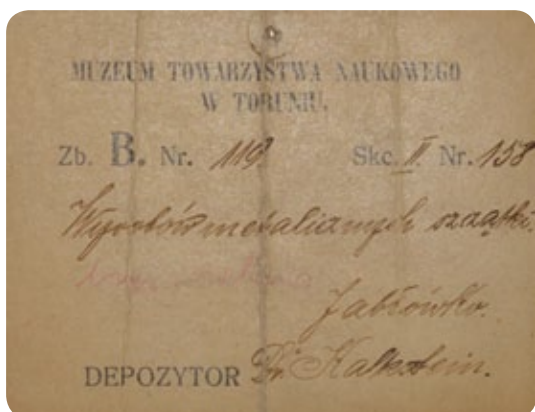 MUZEUM TOWARZYSTWA NAUKOWEGO
W TORUNIU.
Zb. B. Nr. 119. Skc. II. Nr. 158
Wyrobów metalicznych szczątki.
Jabłówko.
DEPOZYTOR Dr. Kalkstein.